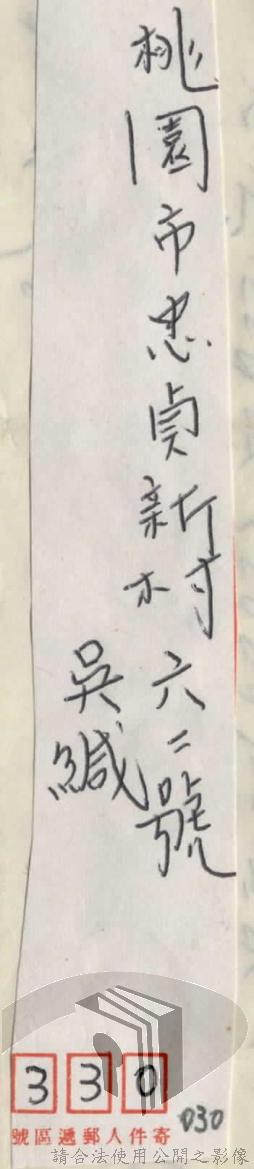 桃園市忠貞新村六二號
吳緘
330
寄件人郵遞區號
030
請合法使用公開之影像